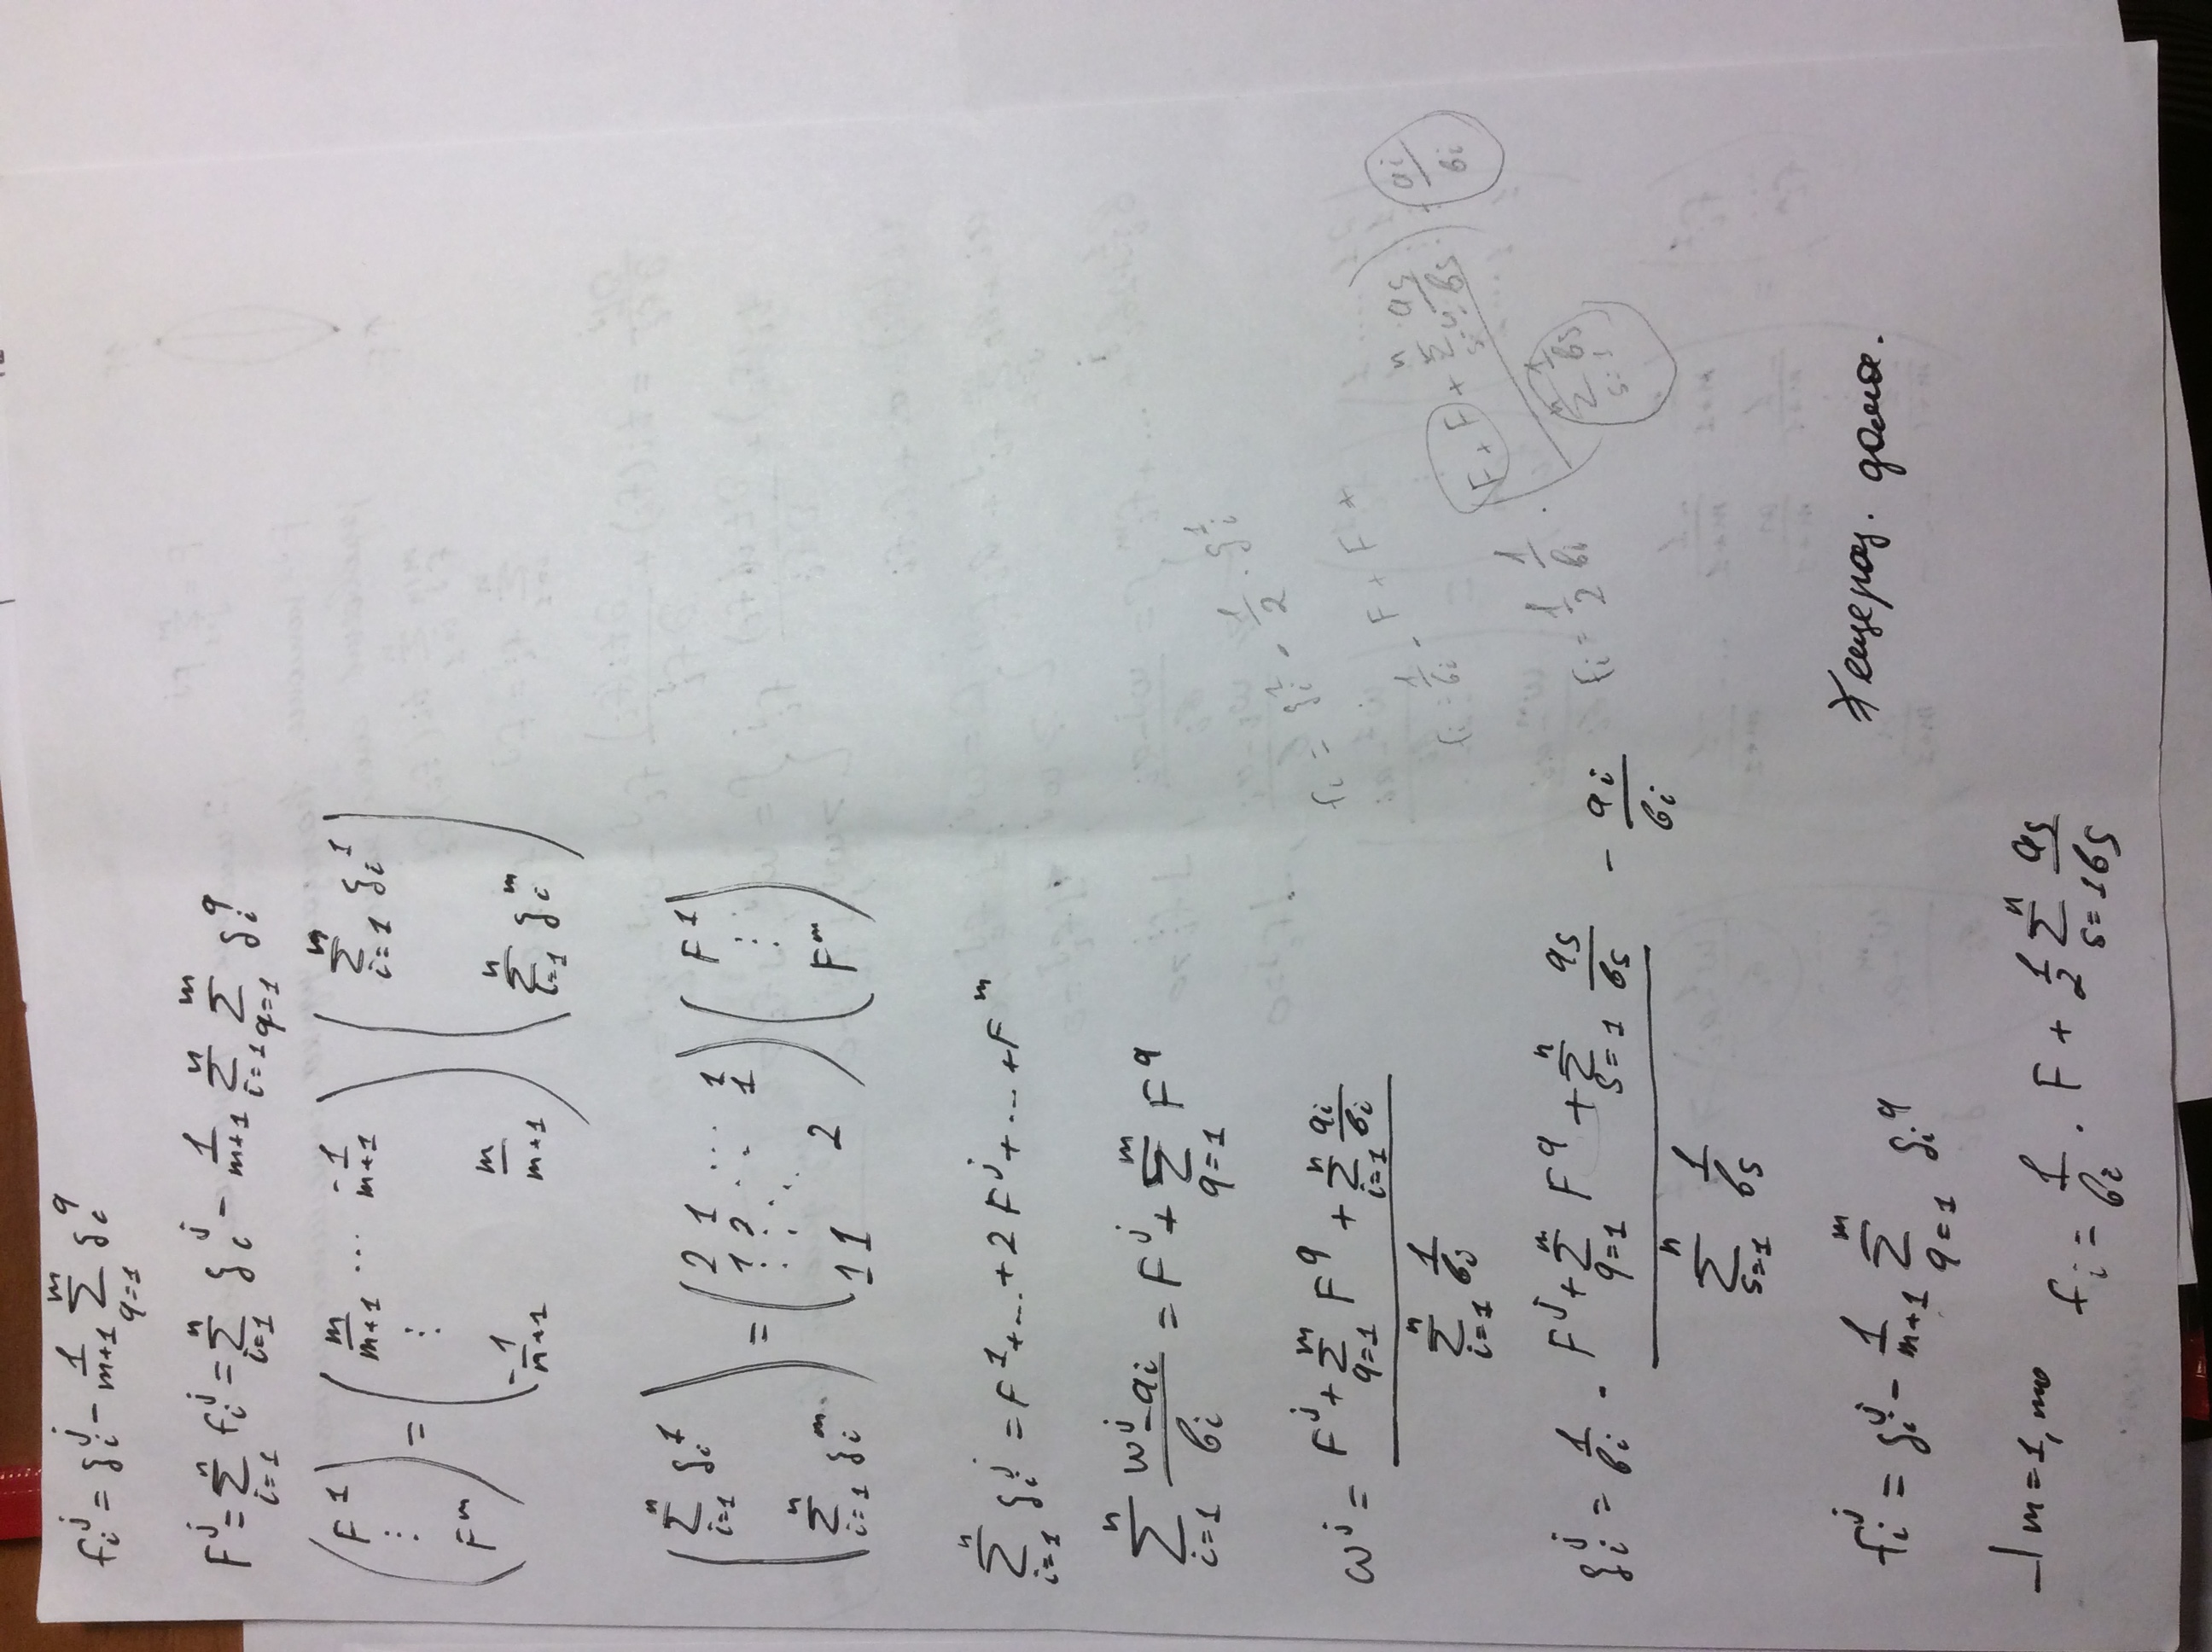 f_i^j = ξ_i^j - \frac{1}{m+1} \sum_{q=1}^{m} ξ_i^q
F^j = \sum_{i=1}^{n} f_i^j = \sum_{i=1}^{n} ξ_i^j - \frac{1}{m+1} \sum_{i=1}^{n} \sum_{q=1}^{m} ξ_i^q
\begin{pmatrix} F^1 \\ \vdots \\ F^m \end{pmatrix} = \begin{pmatrix} \frac{m}{m+1} & \cdots & \frac{-1}{m+1} \\ \vdots & & \\ \frac{-1}{m+1} & & \frac{m}{m+1} \end{pmatrix} \begin{pmatrix} \sum_{i=1}^{n} ξ_i^1 \\ \\ \sum_{i=1}^{n} ξ_i^m \end{pmatrix}
\begin{pmatrix} \sum_{i=1}^{n} ξ_i^1 \\ \\ \sum_{i=1}^{n} ξ_i^m \end{pmatrix} = \begin{pmatrix} 2 & 1 & \cdots & 1 \\ 1 & 2 & \cdots & 1 \\ \vdots & \vdots & \ddots & \\ 1 & 1 & & 2 \end{pmatrix} \begin{pmatrix} F^1 \\ \vdots \\ F^m \end{pmatrix}
\sum_{i=1}^{n} ξ_i^j = F^1 + ... + 2F^j + ... + F^m
\sum_{i=1}^{n} \frac{ω^j - a_i}{b_i} = F^j + \sum_{q=1}^{m} F^q
f_i = ξ_i^1 - \frac{1}{2} · ξ_i^1
ω^j = \frac{F^j + \sum_{q=1}^{m} F^q + \sum_{i=1}^{n} \frac{a_i}{b_i}}{\sum_{i=1}^{n} \frac{1}{b_i}}
f_i = \frac{1}{b_i} - F + F +
f_i = \frac{1}{2} \frac{1}{b_i} · \frac{F + F + \sum_{s=1}^{n} \frac{a_s}{b_s}}{\sum_{s=1}^{n} \frac{1}{b_s}} - \frac{a_i}{b_i}
ξ_i^j = \frac{1}{b_i} · \frac{F^j + \sum_{q=1}^{m} F^q + \sum_{s=1}^{n} \frac{a_s}{b_s}}{\sum_{s=1}^{n} \frac{1}{b_s}} - \frac{a_i}{b_i}
f_i^j = ξ_i^j - \frac{1}{m+1} \sum_{q=1}^{m} ξ_i^q
дома.
⊣ m = 1, то f_i = \frac{1}{b_i} · F + \frac{1}{2} \sum_{s=1}^{n} \frac{a_s}{b_s}